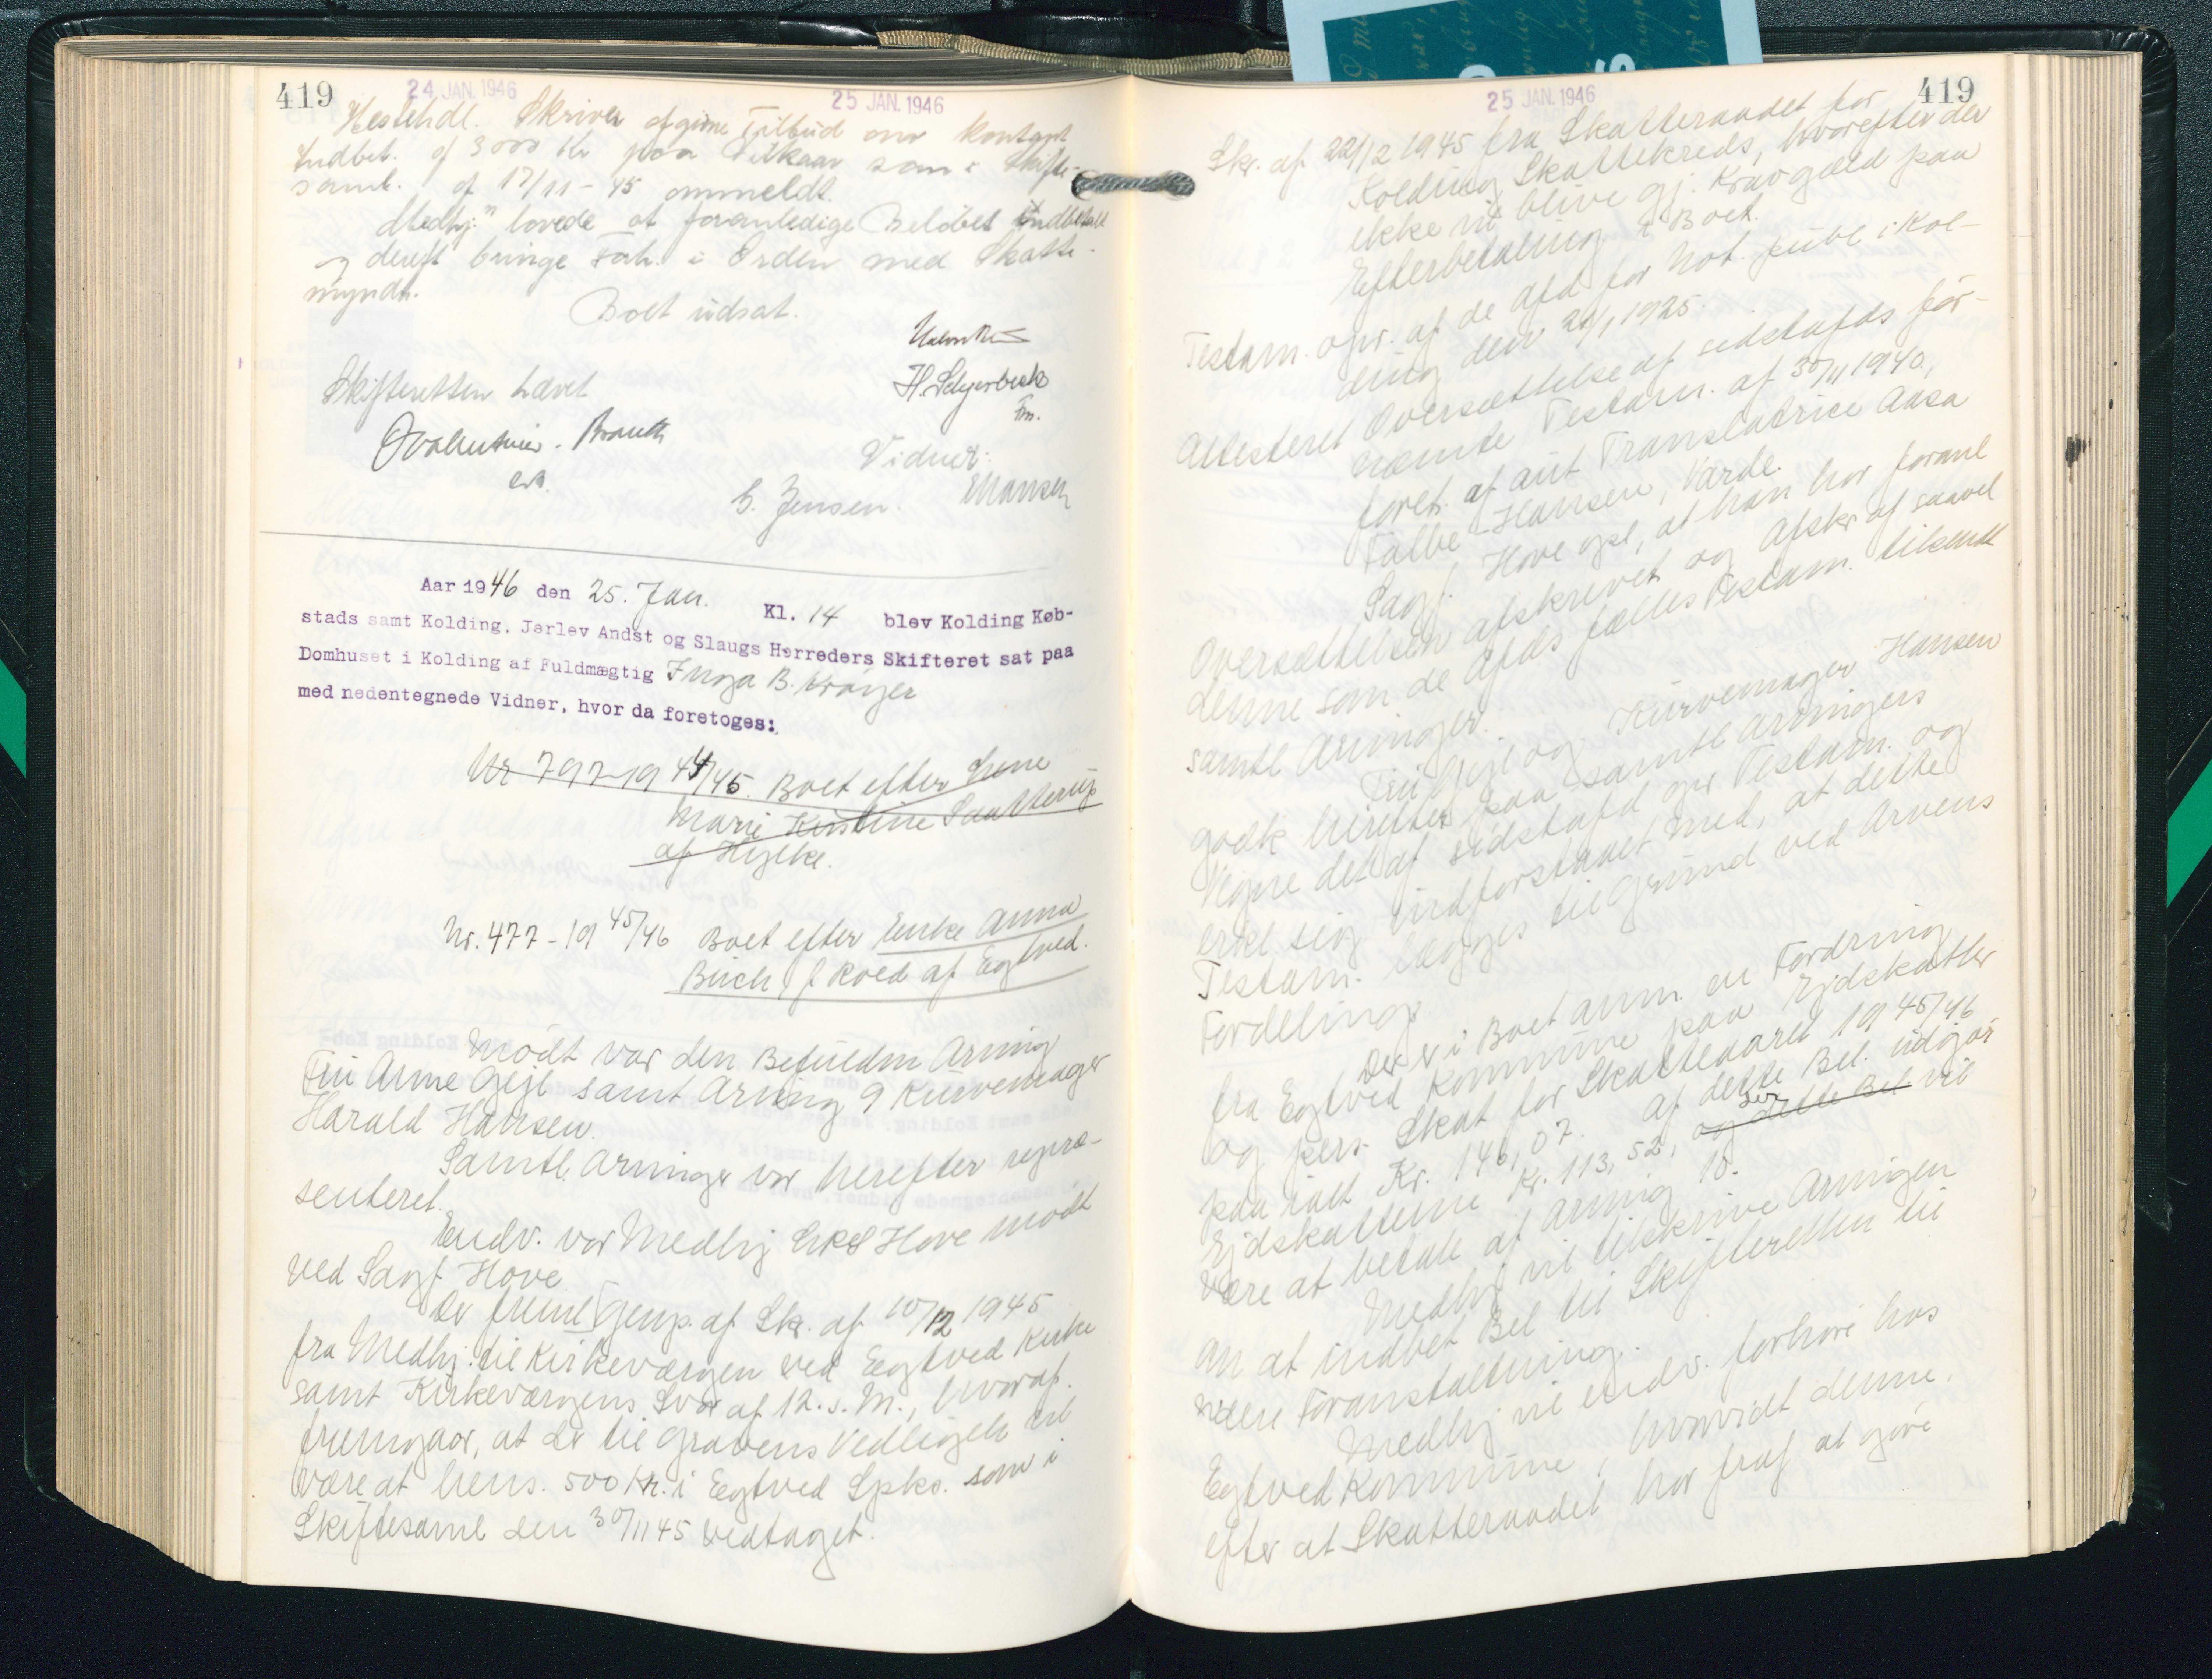 419
24 JAN. 1946
25 JAN. 1946
Hestehdl. Skriver afgivne Tilbud om kontant
Indbet. af 3000 Kr paa Vilkaar som i Skifte-
saml. af 17/11-45 ommeldt.
Medhj. lovede at foranledige Beløbet indbetalt
og dereft bringe i Orden med Skatte-
myndh.
Boet udsat.
H. Schjerbeck
Fm.
Skifteretten hævet
Vidner:
G. Jensen.
E Hansen
Aar 1946 den 25. Jan. Kl. 14 blev Kolding Køb-
stads samt Kolding, Jerlev Andst og Slaugs Herreders Skifteret sat paa
Domhuset i Kolding af Fuldmægtig Inga B. Krøyer
med nedentegnede Vidner, hvor da foretoges:
Nr 797-1944/45. Boet efter Lene
Marie Kirstine Saatterup
af Hjelke.
Nr. 477-1945/46 Boet efter Enke Anna
Buch f. Roed af Egtved.
Mødt var den Befuldm Arving
Fru Anne Gejl samt Arving 9 Kurvemager
Harald Hansen.
Samtl. Arvinger var herefter repræ-
senteret.
Endv. var Medhj LRS Hove mødt
ved Sagf. Hove.
Der freml Genp. af Sk. af 10/12 1945
fra Medhj. til Kirkeværgen ved Egtved Kirke
samt Kirkeværgens Svar af 12. s. M., hvoraf
fremgaar, at der til Gravens Vedligeh vil
være at hens. 500 Kr. i Egtved Spks. som i
Skiftesaml den 30/11 45 vedtaget.
419
25 JAN. 1946
Skr. af 22/12 1945 fra Skatteraadet for
Kolding Skattekreds, hvorefter der
ikke vil blive gj. Krav gæld paa
Efterbetaling i Boet.
Testam. opr. af de Afd for Not. publ i Kol-
ding den 21/1 1925.
Attesteret Oversættelse af sidstafds før-
nævnte Testam. af 30/11 1940,
foret. af aut Translatrice Aasa
Talbe-Hansen, Varde.
Sagf. Hove opl, at han har foranl
Oversættelsen afskrevet og Afskr af saavel
denne som de Afds fælles Testam. tilsendt
samtl Arvinger.
Fru Gejl og Kurvemager Hansen
godk herefter paa samtl Arvingers
Vegne det af sidstafd opr Testam. og
erkl sig indforstaaet med, at dette
Testam. lægges til Grund ved Arvens
Fordeling.
Der er i Boet anm. en Fordring
fra Egtved Kommune paa Ejdskatter
og pers. Skat for Skatteaaret 1945/46
paa ialt Kr. 146,07. Af dette Bel. udgør
Ejdskatterne Kr. 113,52, og dette Bel der vil
være at betale af Arving 10.
Medhj vil tilskrive Arvingen
om at indbet Bel til Skifteretten til
videre Foranstaltning.
Medhj vil endv. forhøre hos
Egtved Kommune, hvorvidt denne,
efter at Skatteraadet har fraf at gøre